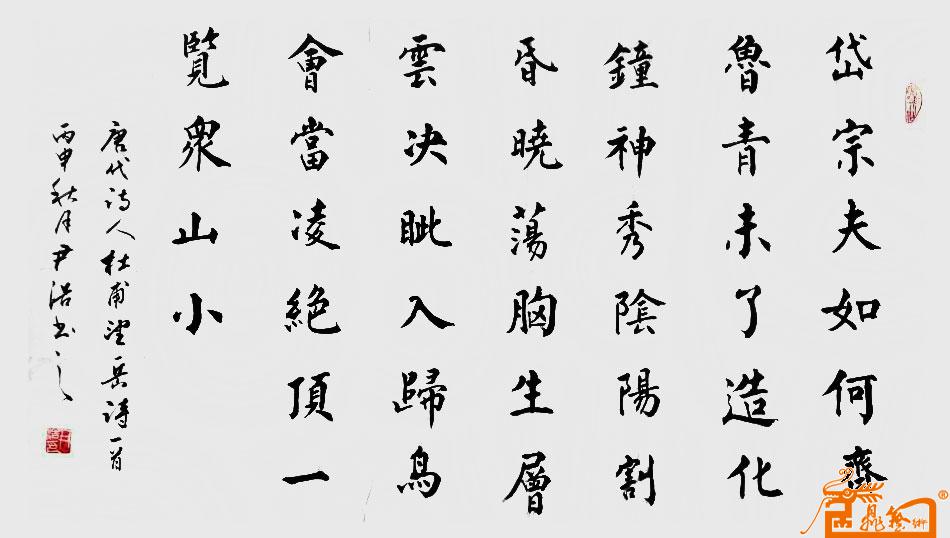 岱宗夫如何齊
魯青未了造化
鐘神秀陰陽割
昏曉蕩胸生層
雲决眦入歸鳥
會當凌絕頂一
覽衆山小
唐代诗人杜甫望岳詩一首
丙申秋月尹浩书之